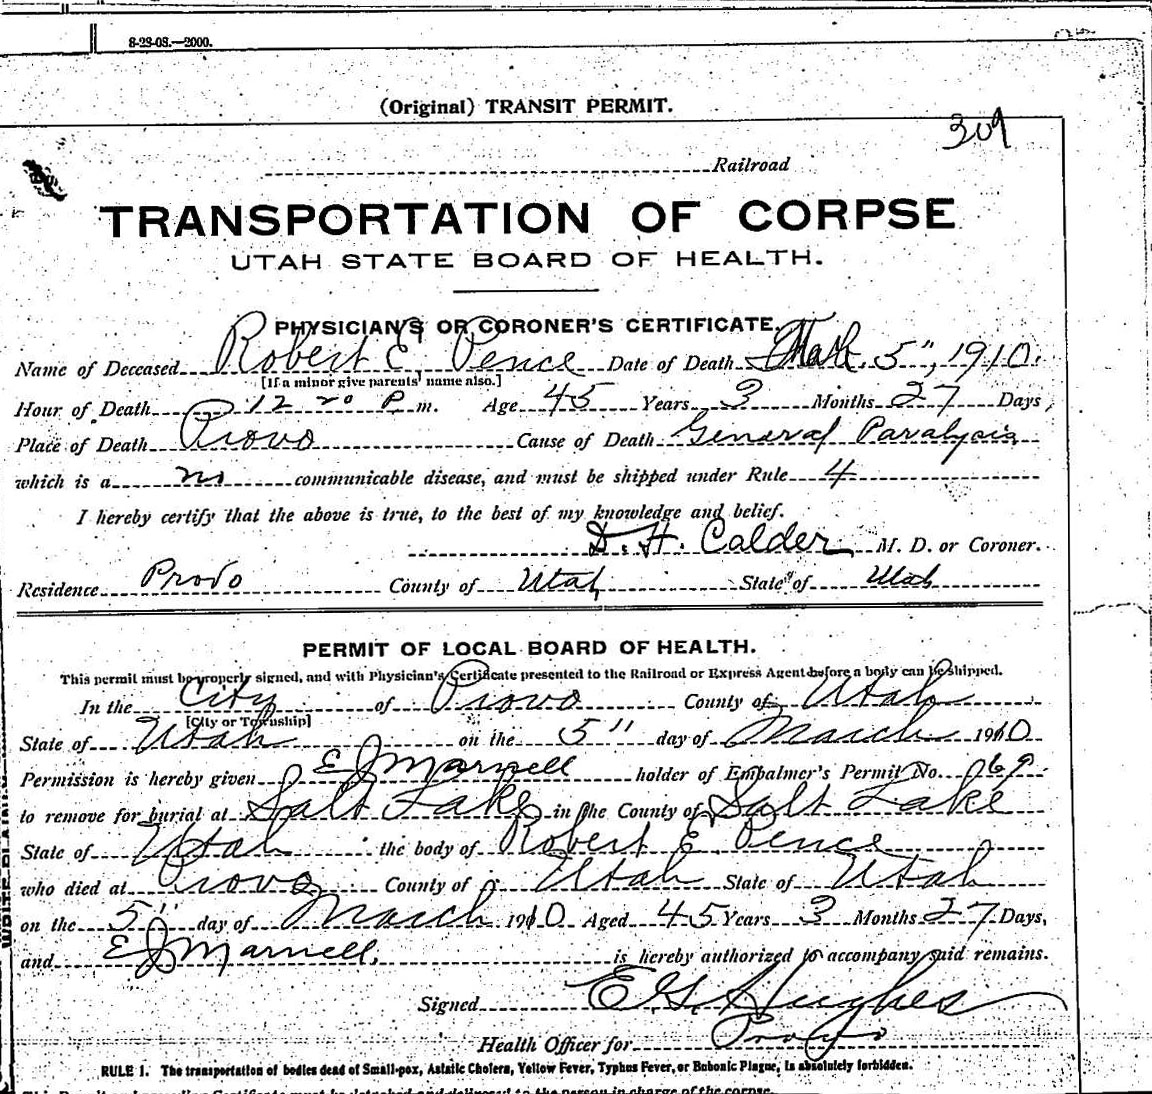 8-23-08.—2000.
(Original) TRANSIT PERMIT.
309
Railroad
TRANSPORTATION OF CORPSE
UTAH STATE BOARD OF HEALTH.
PHYSICIAN'S OR CORONER'S CERTIFICATE.
Name of Deceased Robert E Pence Date of Death Mch. 5", 1910.
[If a minor give parents' name also.]
Hour of Death 12 20 P m. Age 45 Years 3 Months 27 Days,
Place of Death Provo Cause of Death General Paralysis
which is a no communicable disease, and must be shipped under Rule 4
I hereby certify that the above is true, to the best of my knowledge and belief.
D. H. Calder M. D. or Coroner.
Residence Provo County of Utah State of Utah
PERMIT OF LOCAL BOARD OF HEALTH.
This permit must be properly signed, and with Physician's Certificate presented to the Railroad or Express Agent before a body can be shipped.
In the City of Provo County of Utah
[City or Township]
State of Utah on the 5" day of March 1910
Permission is hereby given E J Marnell holder of Embalmer's Permit No. 69
to remove for burial at Salt Lake in the County of Salt Lake
State of Utah the body of Robert E. Pence
who died at Provo County of Utah State of Utah
on the 5" day of March 1910 Aged 45 Years 3 Months 27 Days,
and E J Marnell. is hereby authorized to accompany said remains.
Signed E. G. Hughes
Health Officer for Provo
RULE 1. The transportation of bodies dead of Small-pox, Asiatic Cholera, Yellow Fever, Typhus Fever, or Bubonic Plague, is absolutely forbidden.